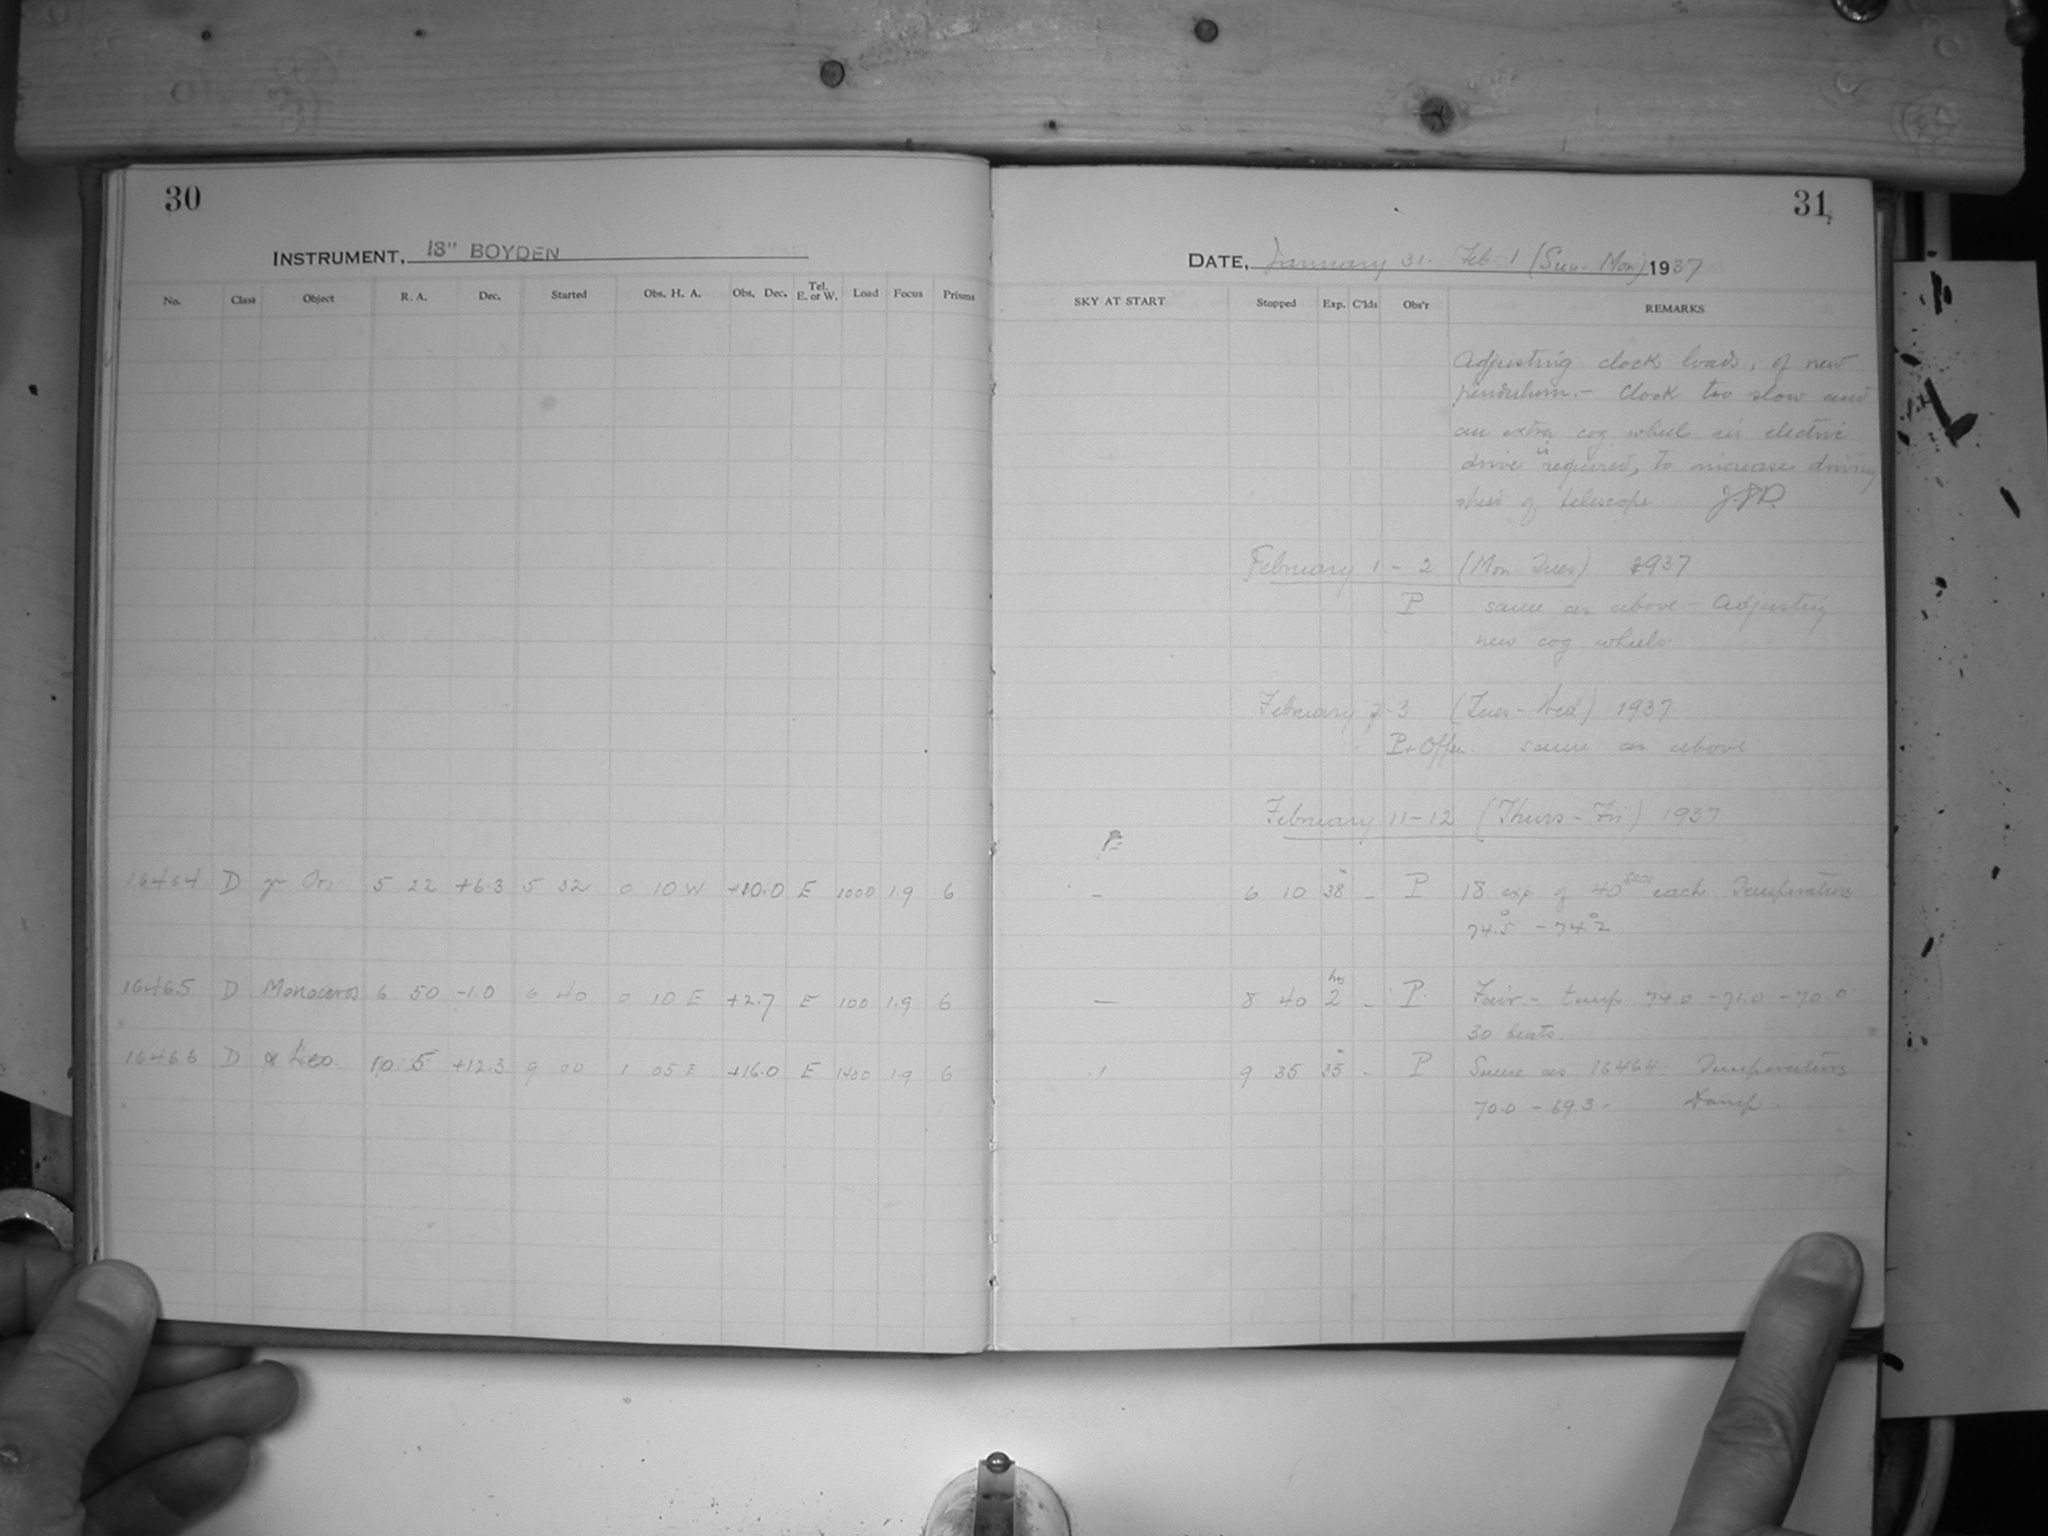 30
INSTRUMENT, 13" BOYDEN
No. Class Object R. A. Dec. Started Obs. H. A. Obs. Dec. Tel. E. or W. Load Focus Prisms
16464 D γ Ori 5 22 +6.3 5 32 0 10 W +10.0 E 1000 1.9 6
16465 D Monoceros 6 50 -1.0 6 40 0 10 E +2.7 E 100 1.9 6
16466 D α Leo. 10 5 +12.3 9 00 1 05 E +16.0 E 1400 1.9 6
31
DATE, January 31. Feb 1 (Sun - Mon) 1937
SKY AT START Stopped Exp. C'lds Obs'r REMARKS
Adjusting clock loads, of new
pendulum. - Clock too slow and
an extra cog wheel in electric
drive is required, to increase driving
of telescope. J.S.P.
February 1 - 2 (Mon Tues) 1937
P same as above - Adjusting
new cog wheels
February 2-3 (Tues - Wed) 1937
P + Offen. same as above
February 11-12 (Thurs - Fri) 1937
- 6 10 38 - P 18 exp of 40 secs each Temperature
74.5 - 74.2
— 8 40 2 hrs - P. Fair. - temp 74.0 - 71.0 - 70.0
30 beats.
1 9 35 35 - P Same as 16464. Temperature
70.0 - 69.3 - Damp.